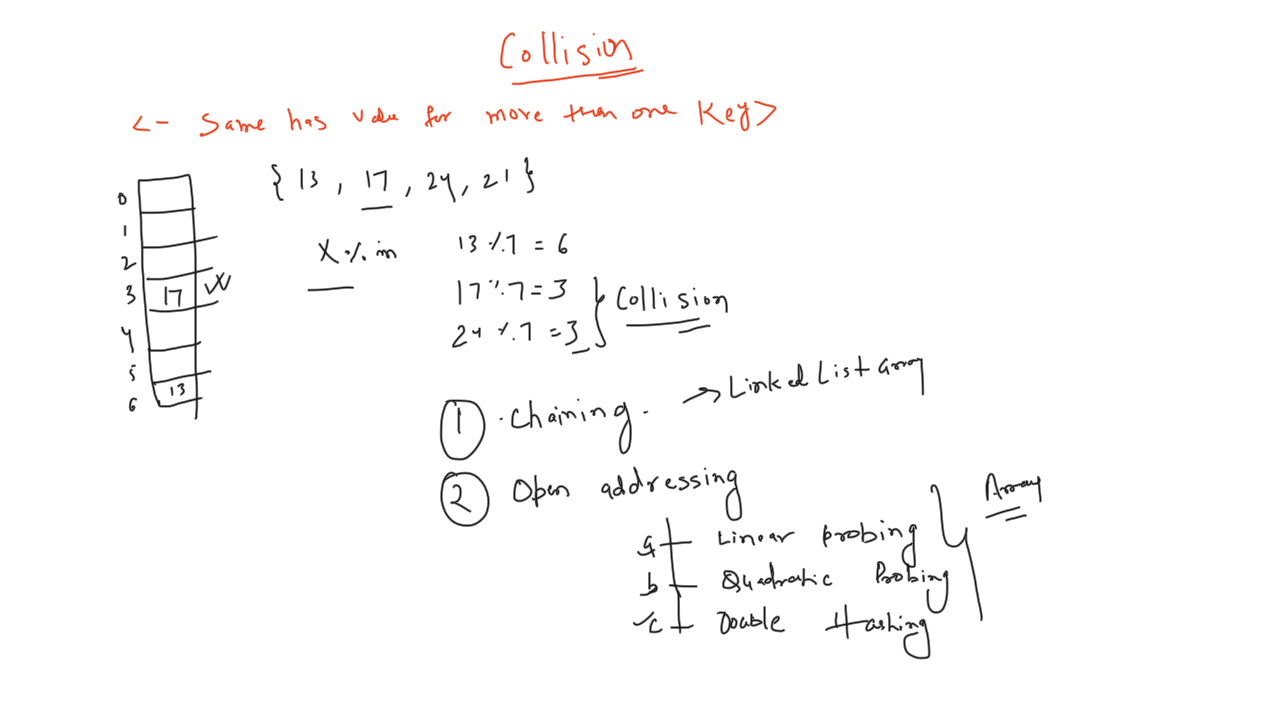 Collision
<- Same has value for more than one Key>
{ 13 , 17 , 24, 21 }
0
1
2
3 17
4
5
6 13
X % m
13 % 7 = 6
17 % 7 = 3
24 % 7 = 3
Collision
1 . Chaining. → Linked List array
2 Open addressing
a Linear Probing
b Quadratic Probing
c Double Hashing
Array